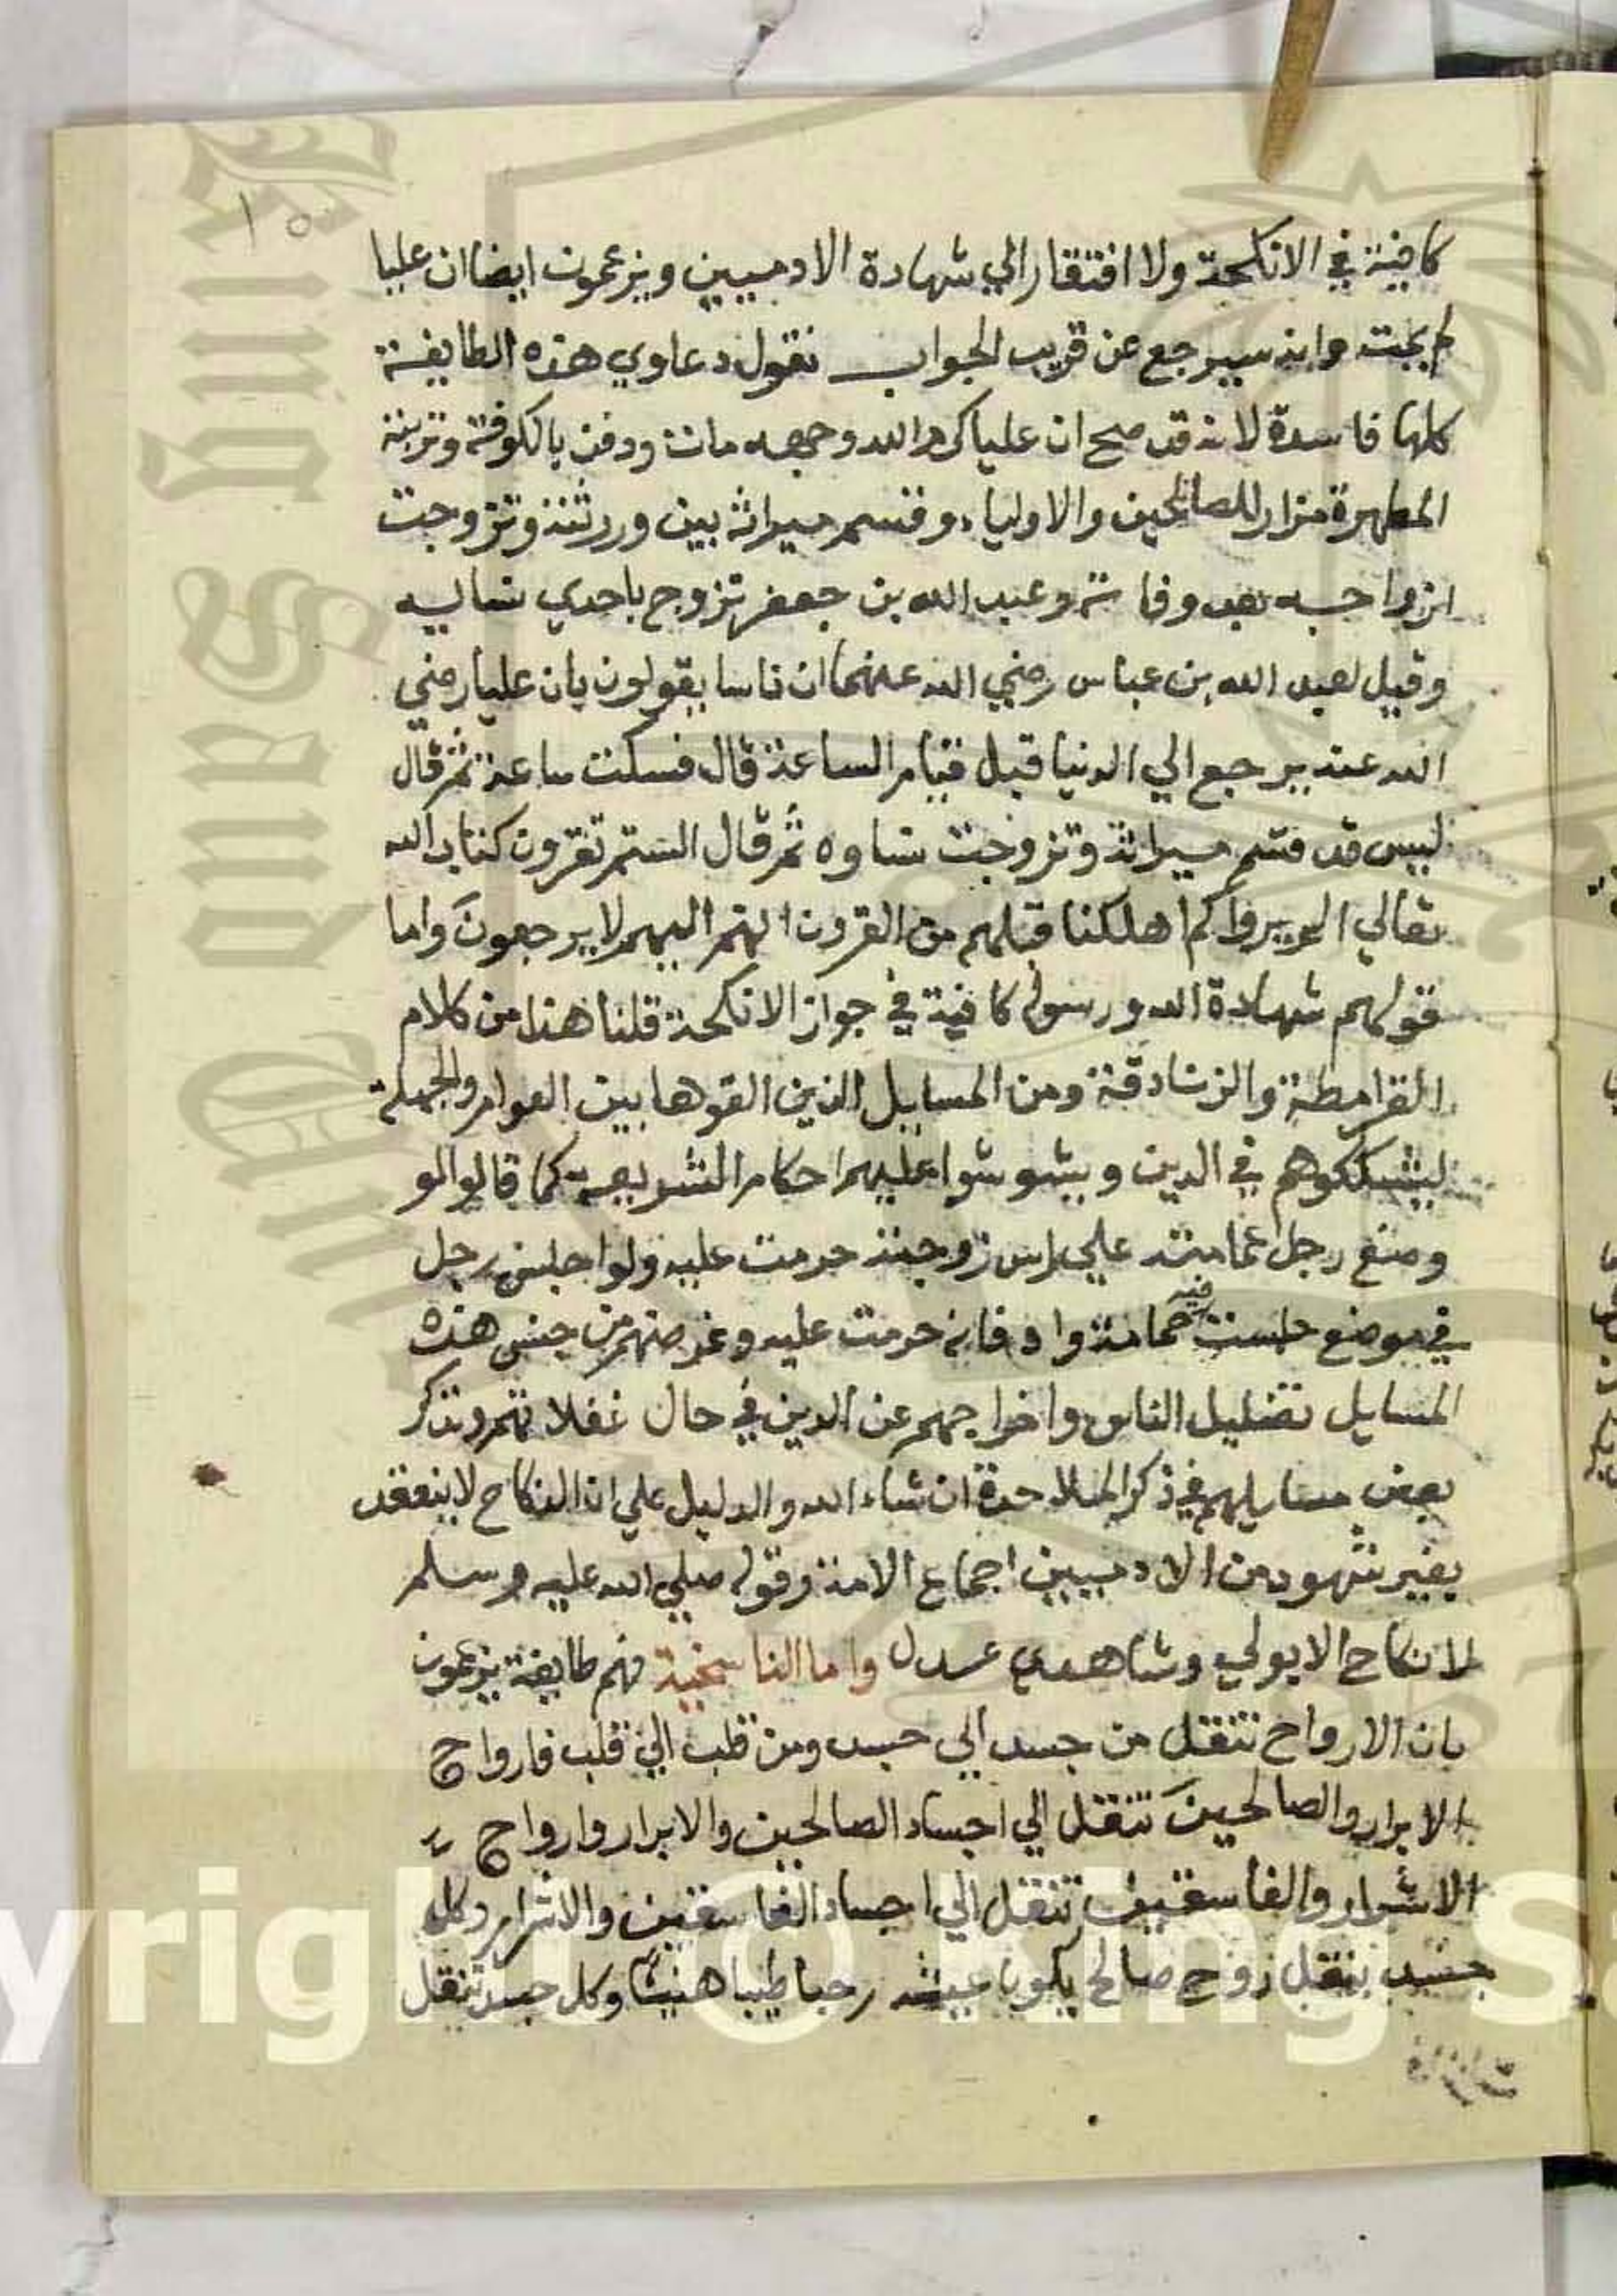 ١٥
كافية في الانكحة ولا افتقار الي شهادة الادميين ويزعمون ايضا ان عليا
لم يمت وانه سيرجع عن قريب الجواب نقول دعاوي هذه الطايفة
كلها فاسدة لانه قد صح ان عليا كرم الله وجهه مات ودفن بالكوفة وتربته
المطهرة مزار للصالحين والاولياء وقسم ميراثه بين وررثته وتزوجت
ازواجه بعد وفاته وعبد الله بن جعفر تزوج باحدي نسايه
وقيل لعبد الله بن عباس رضي الله عنهما ان ناسا يقولون بان عليا رضي
الله عنه يرجع الي الدنيا قبل قيام الساعة قال فسكت ساعة ثم قال
ليس قد قسم ميراثه وتزوجت نساوه ثم قال الستم تقرون كتاب الله
تعالي الم يروا كم اهلكنا قبلهم من القرون انهم اليهم لا يرجعون واما
قولهم شهادة الله ورسوله كافية في جواز الانكحة قلنا هذا من كلام
القرامطة والزنادقة ومن المسايل الذين القوها بين العوام والجهلة
ليشككوهم في الدين ويشوشوا عليهم احكام الشريعة كما قالوا لو
وضع رجل عمامته علي راس زوجته حرمت عليه ولو اجلس رجل
في موضع جلست فيه حماته وا فانه حرمت عليه وغرضهم من جنس هذه
المسايل تضليل الناس واخراجهم عن الدين في حال غفلاتهم ونذكر
بعض مسايلهم في ذكر الملاحدة ان شاء الله والدليل علي ان النكاح لا ينعقد
بغير شهود من الادميين اجماع الامة وقوله صلي الله عليه وسلم
لا نكاح الا بولي وشاهدي عدل واما التناسخية فهم طايفة يزعمون
بان الارواح تنتقل من جسد الي جسد ومن قلب الي قلب فارواح
الابرار والصالحين تنتقل الي اجساد الصالحين والابرار وارواح
الاشرار والفاسقين تنتقل الي اجساد الفاسقين والاشرار وكل
جسد ينتقل روح صالح يكون عيشه رحبا طيبا هنيئا وكل جسد تنتقل
yright © King Sa